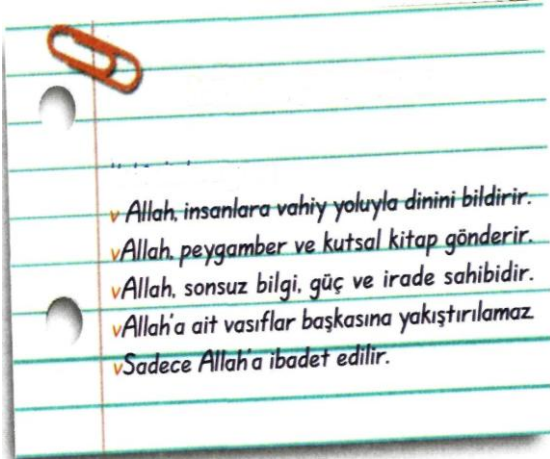 v Allah, insanlara vahiy yoluyla dinini bildirir.
v Allah, peygamber ve kutsal kitap gönderir.
v Allah, sonsuz bilgi, güç ve irade sahibidir.
v Allah'a ait vasıflar başkasına yakıştırılamaz
v Sadece Allah'a ibadet edilir.